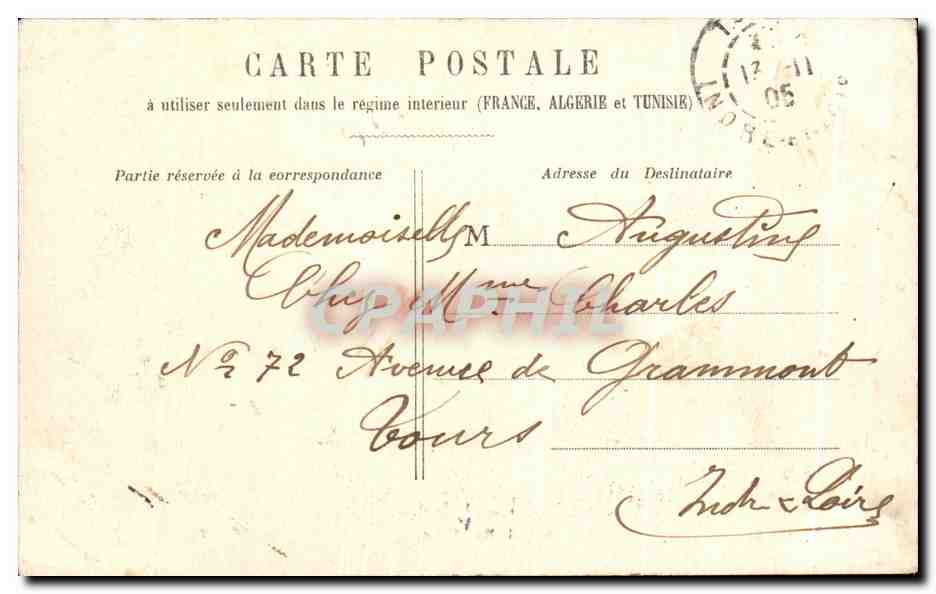 CARTE POSTALE
à utiliser seulement dans le régime intérieur (FRANCE, ALGERIE et TUNISIE)
13 -11
05
INDRE-ET-LOIRE
Partie réservée à la correspondance
Adresse du Destinataire
Mademoiselle M Augustine
Chez Mme Charles
No 72 Avenue de Grammont
Tours
Indr & Loire
CPAPHIL